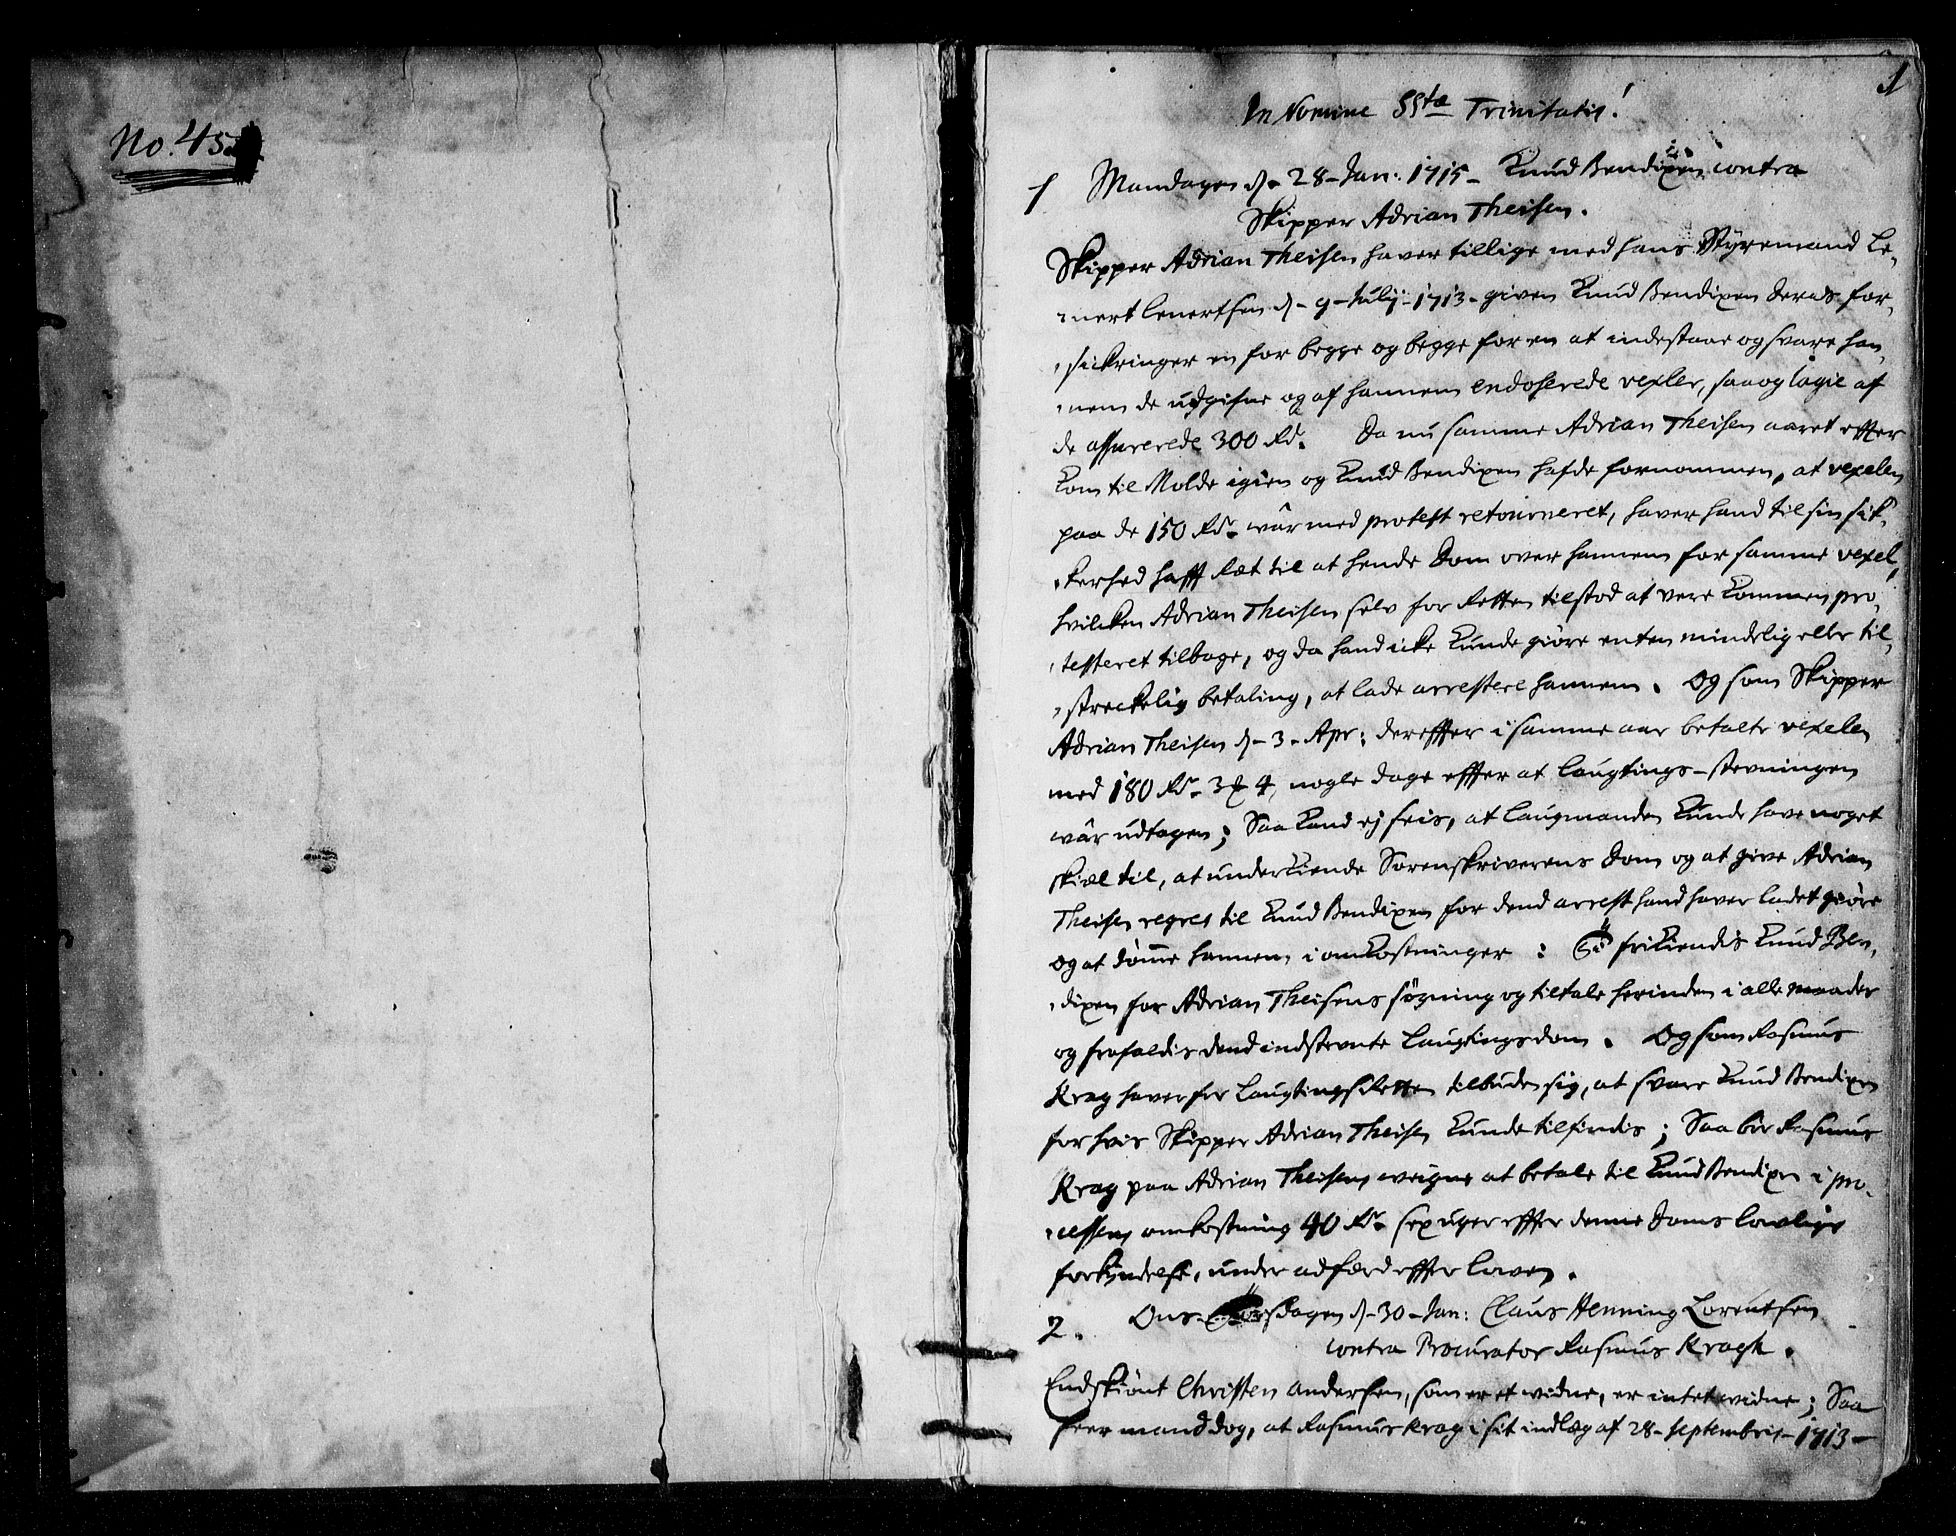 No. 45
1
In Nomine SStæ Trinitatis!
1 Mandagen d. 28 Jan: 1715 - Knud Bendixen contra
Skipper Adrian Theisen.
Skipper Adrian Theisen haver tillige med hans Styremand Le-
nert Lenertsen d. 9 Julij 1713 given Knud Bendixen deres for-
sickringer en for begge og begge for en at indestaae og svare han-
nem de udgifne og af hannem endosserede vexler, saa og lagie af
de assurerede 300 Rdr. Da nu samme Adrian Theisen aaret effter
kom til Molde igien og Knud Bendixen hafde fornommen, at vexelen
paa de 150 Rdr. wår med protest retourneret, haver hand til sin sik-
kerhed hafft Ræt til at hende Dom over hannem for samme vexel,
hvilcken Adrian Theisen selv for Retten tilstod at vere kommen pro-
testeret tilbage, og da hand icke kunde giøre enten mindelig eller til-
streckelig betaling, at lade arrestere hannem. Og som Skipper
Adrian Theisen d. 3 Apr: dereffter i samme aar betalte vexelen
med 180 Rdr. 3 ₰ 4, nogle dage effter at Laugtings-stevningen
wår udtagen; Saa kand ej sees, at Laugmanden kunde have noget
skiæl til, at underkiende Sorenskriverens Dom og at give Adrian
Theisen regres til Knud Bendixen for dend arrest hand haver ladet giøre
og at dømme hannem i omkostninger: frikiendis Knud Ben-
dixen for Adrian Theisens søgning og tiltale herinden i alle maader
og frafaldis dend indstevnte Laugtingsdom. Og som Rasmus
Krag haver for LaugtingsRetten tilbuden sig, at svare Knud Bendixen
for hvis Skipper Adrian Theisen kunde tilfindis; Saa bør Rasmus
Krag paa Adrian Theisens weigne at betale til Knud Bendixen i pro-
cessens omkostning 40 Rdr. sex uger effter denne Doms lovlige
forkyndelse, under adfærd effter loven.
2. Ons dagen d. 30 Jan: Claus Henning Lorentsen
contra Procurator Rasmus Kragh.
Endskiønt Christen Andersen, som er et widne, er intet widne; Saa
seer mand dog, at Rasmus Krag i sit indlæg af 28 Septembris 1713